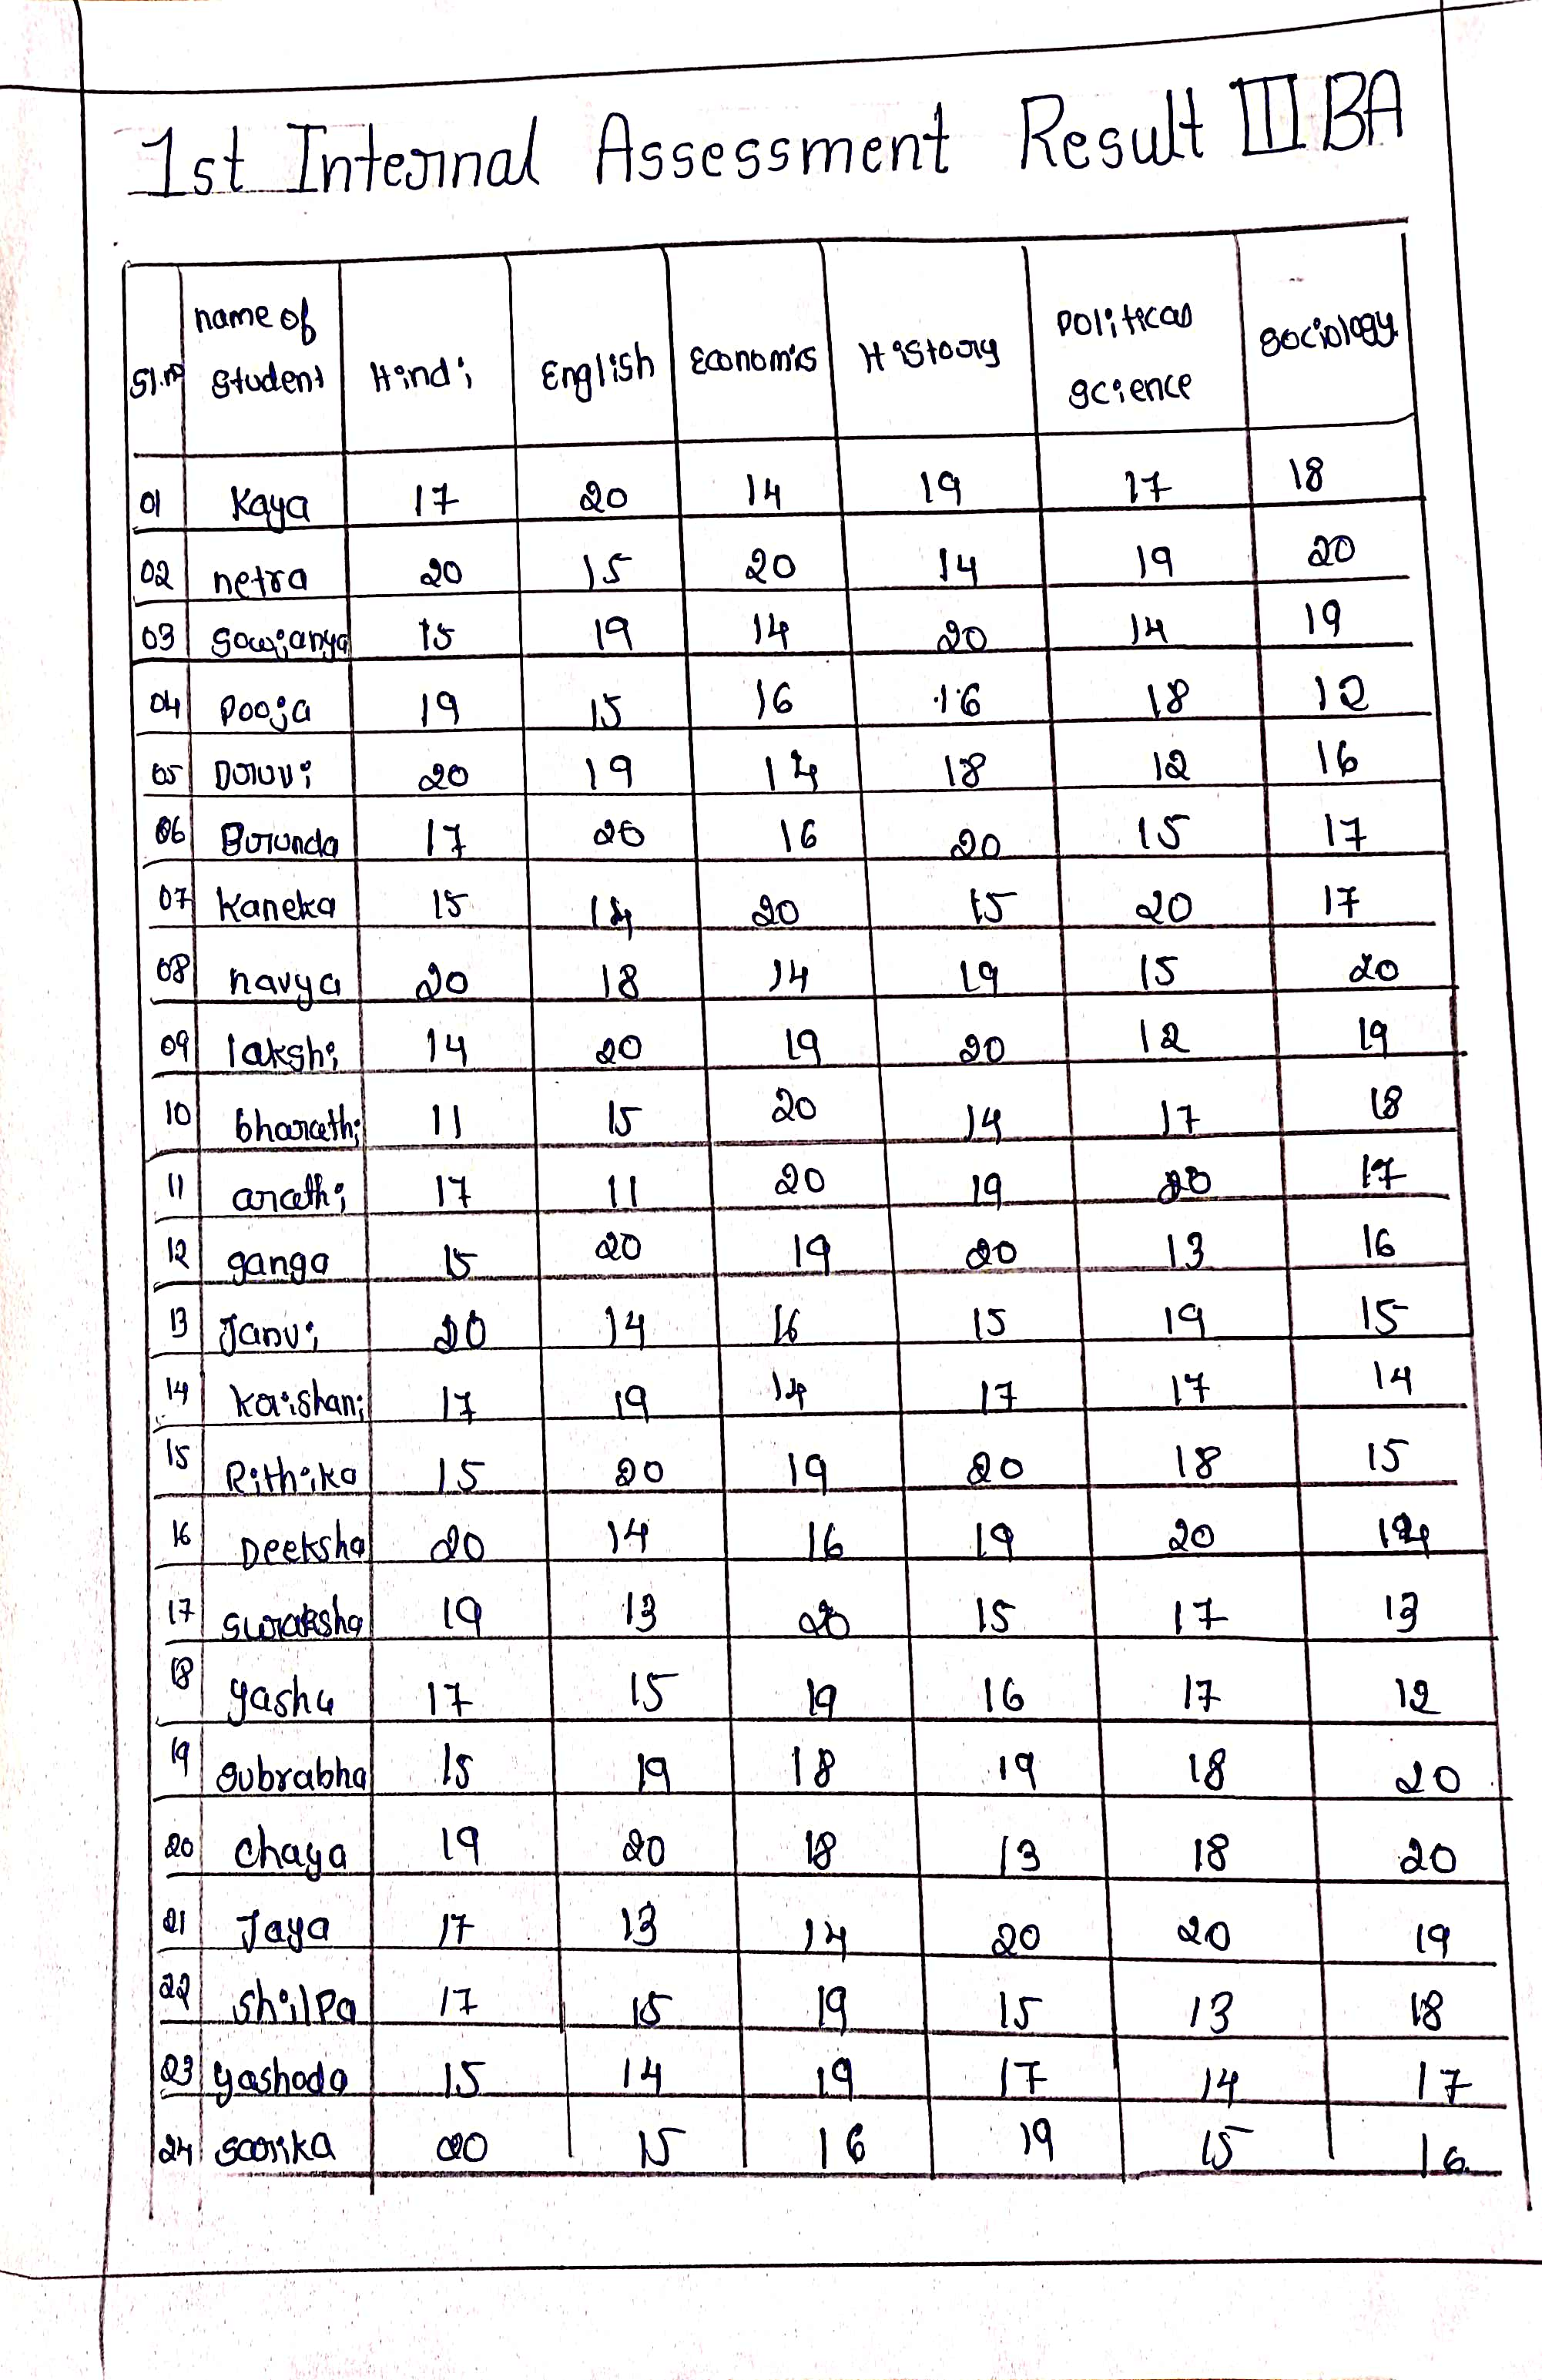 1st Internal Assessment Result III BA
Sl.no name of Student Hindi English Economics History political science sociology
01 Kaya 17 20 14 19 17 18
02 netra 20 15 20 14 19 20
03 Sowjanya 15 19 14 20 14 19
04 Pooja 19 15 16 16 18 12
05 Druvi 20 19 14 18 12 16
06 Brunda 17 20 16 20 15 17
07 Kaneka 15 14 20 15 20 17
08 navya 20 18 14 19 15 20
09 lakshi 14 20 19 20 12 19
10 bharathi 11 15 20 14 17 18
11 arathi 17 11 20 19 20 17
12 ganga 15 20 19 20 13 16
13 Janvi 20 14 16 15 19 15
14 Karishani 17 19 14 17 17 14
15 Rithika 15 20 19 20 18 15
16 Deeksha 20 14 16 19 20
17 Suraksha 19 13 20 15 17 13
18 yashu 17 15 19 16 17 12
19 Subrabha 15 19 18 19 18 20
20 Chaya 19 20 18 13 18 20
21 Jaya 17 13 14 20 20 19
22 Shilpa 17 15 19 15 13 18
23 yashoda 15 14 19 17 14 17
24 Sarika 20 15 16 19 15 16